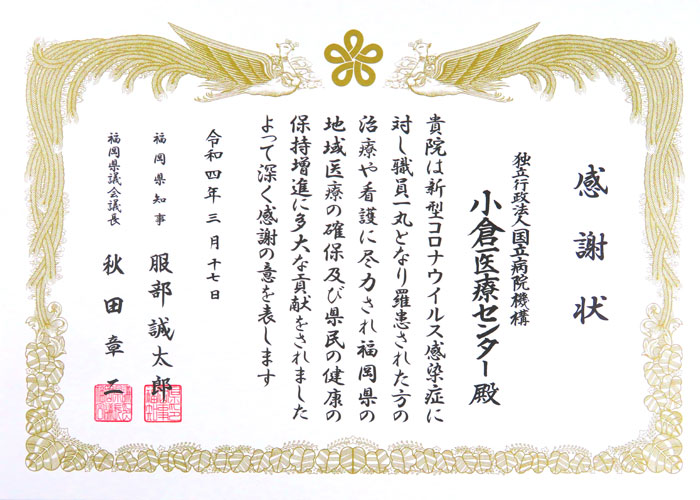 感謝状
独立行政法人国立病院機構
小倉医療センター 殿
貴院は新型コロナウイルス感染症に
対し職員一丸となり羅患された方の
治療や看護に尽力され福岡県の
地域医療の確保及び県民の健康の
保持増進に多大な貢献をされました
よって深く感謝の意を表します
令和四年三月十七日
福岡県知事 服部誠太郎
福岡県議会議長 秋田章二